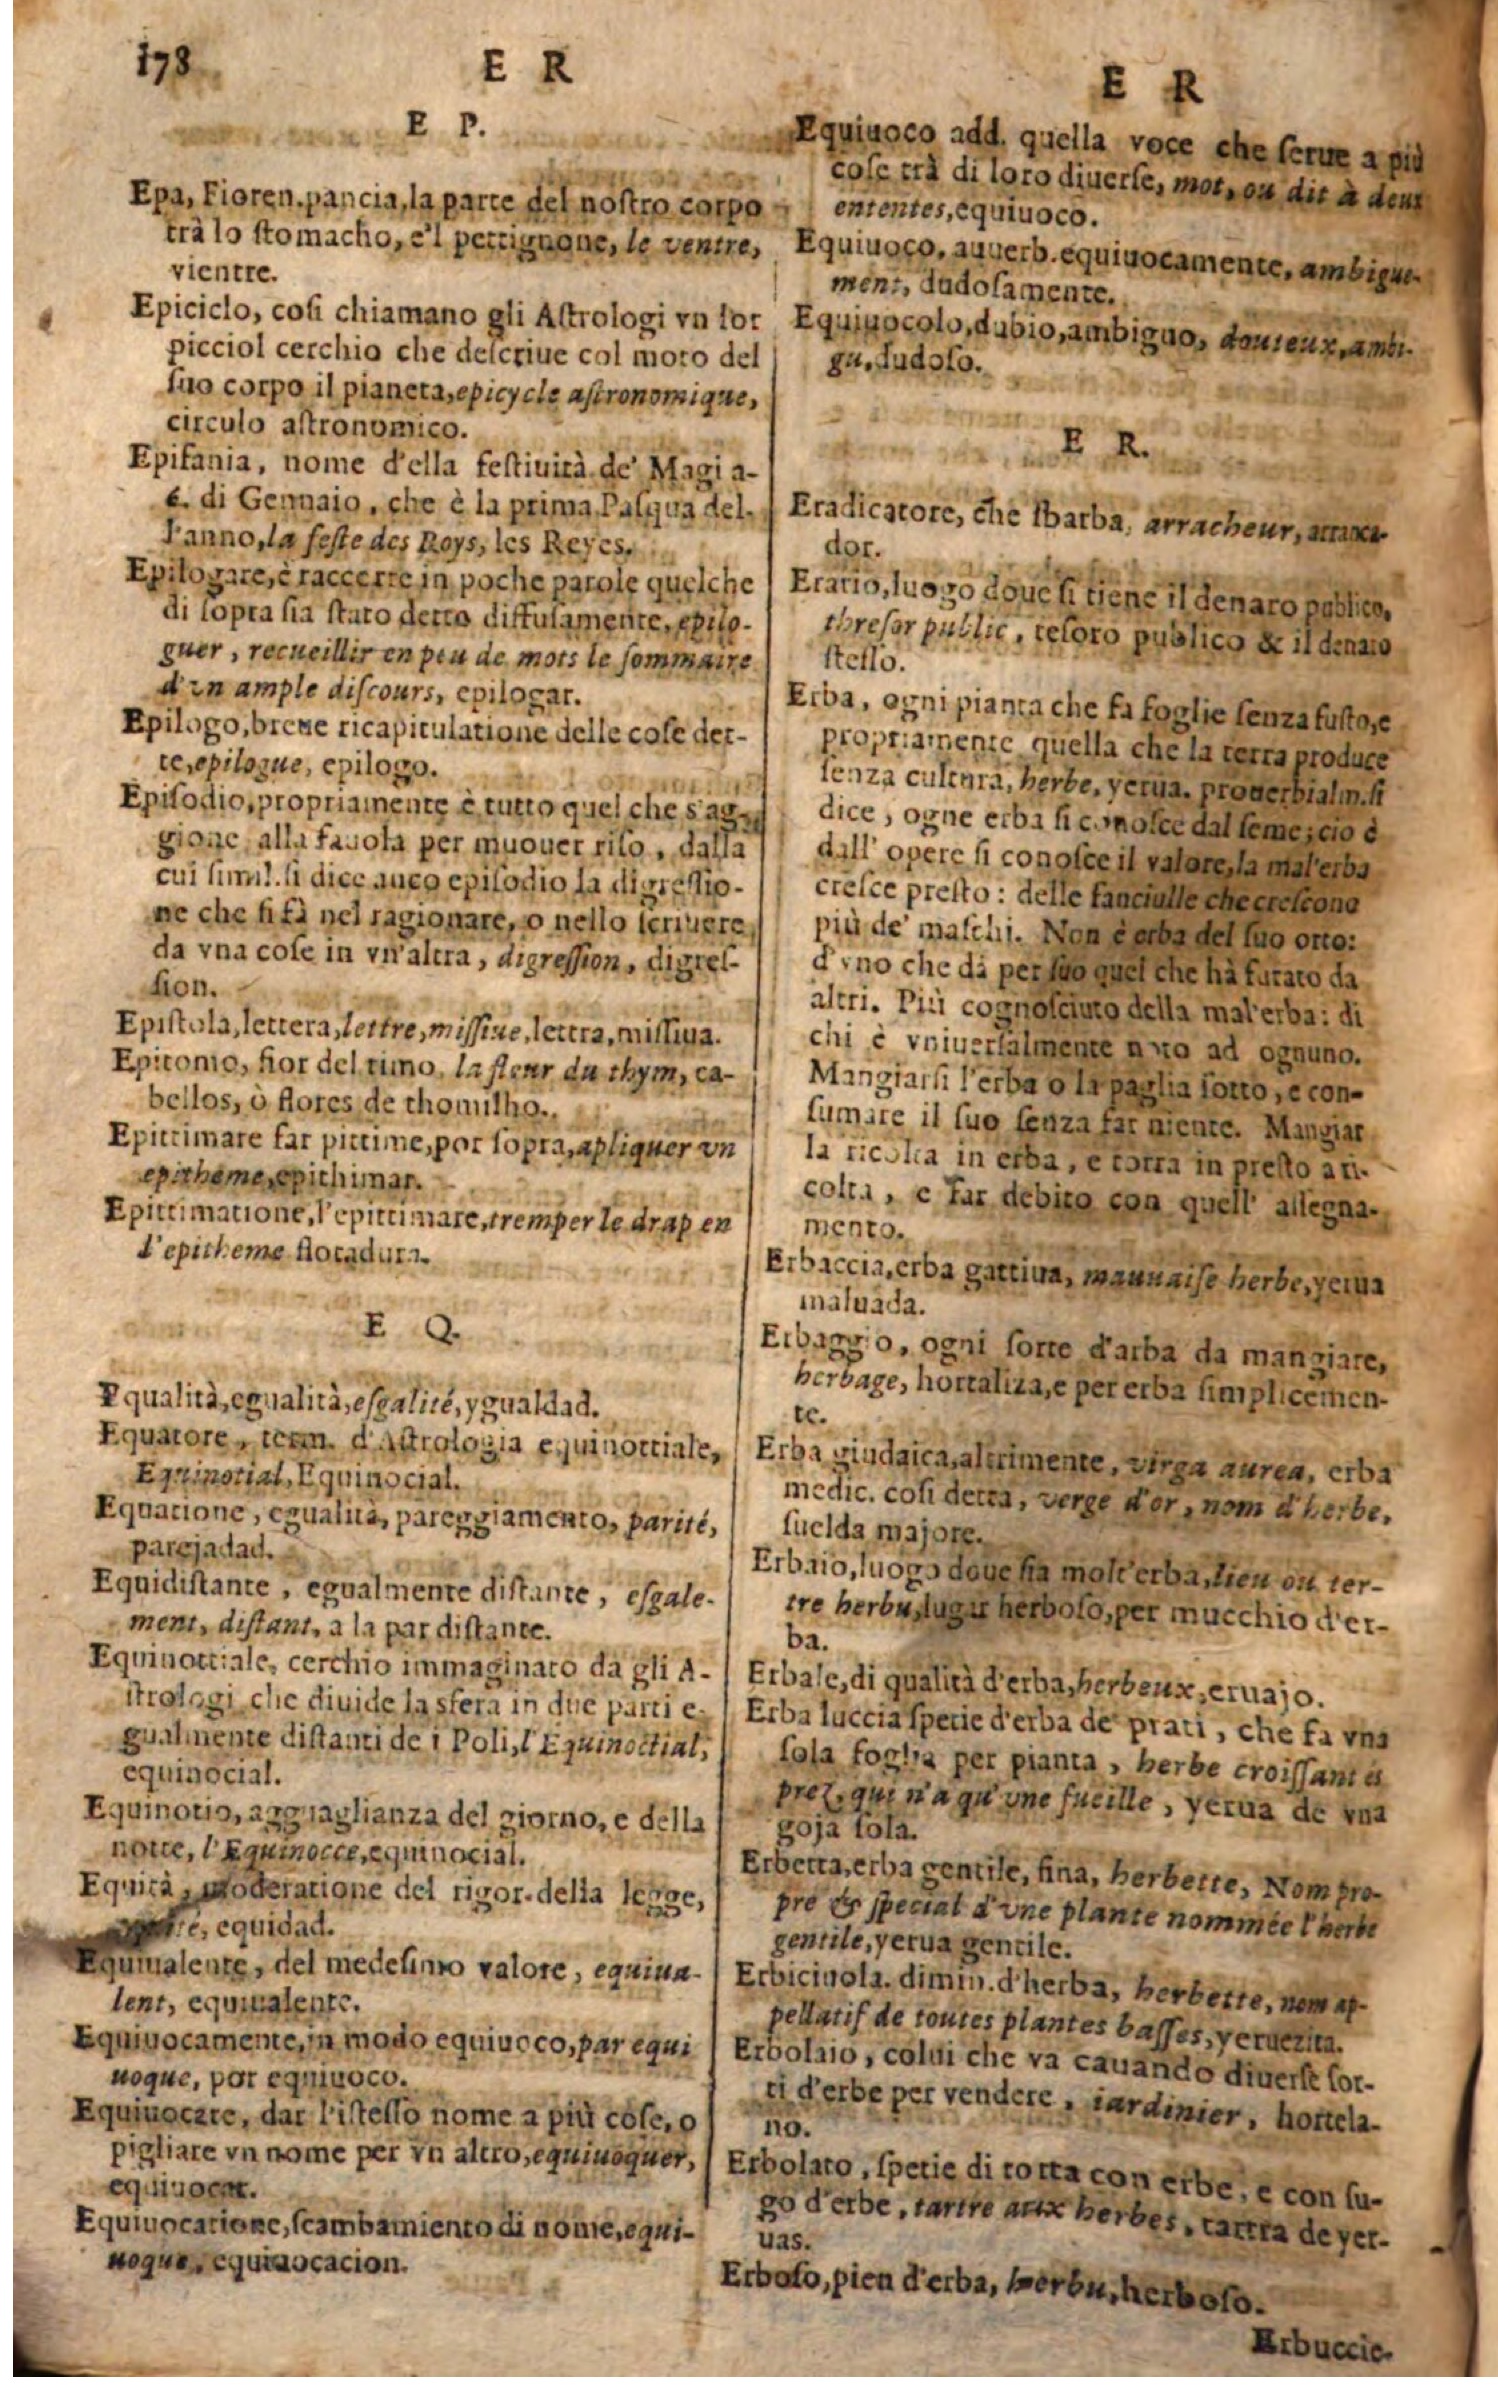 178
E R
E P.
Epa, Fioren.pancia,la parte del noſtro corpo
trà lo ſtomacho, e'l pettignone, le ventre,
vientre.
Epiciclo, coſi chiamano gli Aſtrologi vn lor
picciol cerchio che deſcriue col moto del
ſuo corpo il pianeta,epicycle aſtronomique,
circulo aſtronomico.
Epifania, nome d'ella feſtiuità de' Magi a-
6. di Gennaio, che è la prima Paſqua del-
l'anno,la feſte des Roys, les Reyes.
Epilogare,è raccerre in poche parole quelche
di ſopra ſia ſtato detto diffuſamente, epilo-
guer, recueillir en peu de mots le ſommaire
d'vn ample diſcours, epilogar.
Epilogo,breue ricapitulatione delle coſe det-
te,epilogue, epilogo.
Epiſodio,propriamente è tutto quel che s'ag-
gione alla fauola per muouer riſo, dalla
cui ſimil.ſi dice anco epiſodio la digreſſio-
ne che ſi fà nel ragionare, o nello ſcriuere
da vna coſe in vn'altra, digreſſion, digreſ-
ſion.
Epiſtola,lettera,lettre,miſſiue,lettra,miſſiua.
Epitomo, fior del timo, la fleur du thym, ca-
bellos, ò flores de thomilho.
Epittimare far pittime,por ſopra,apliquer vn
epitheme,epithimar.
Epittimatione,l'epittimare,tremper le drap en
l'epitheme flotadura.
E Q.
Equalità,egualità,eſgalité,ygualdad.
Equatore, term. d'Aſtrologia equinottiale,
Equinotial,Equinocial.
Equatione, egualità, pareggiamento, parité,
parejadad.
Equidiſtante, egualmente diſtante, eſgale-
ment, diſtant, a la par diſtante.
Equinottiale, cerchio immaginato da gli A-
ſtrologi che diuide la sfera in due parti e-
gualmente diſtanti de i Poli,l'Equinoctial,
equinocial.
Equinotio, agguaglianza del giorno, e della
notte, l'Equinocce,equinocial.
Equità, moderatione del rigor della legge,
equidad.
Equiualente, del medeſimo valore, equiua-
lent, equiualente.
Equiuocamente,in modo equiuoco,par equi
uoque, por equiuoco.
Equiuocare, dar l'iſteſſo nome a più coſe, o
pigliare vn nome per vn altro,equiuoquer,
equiuocar.
Equiuocatione,ſcambamiento di nome,equi-
uoque, equiuocacion.
E R
Equiuoco add. quella voce che ſerue a più
coſe trà di loro diuerſe, mot, ou dit à deux
ententes,equiuoco.
Equiuoco, auuerb.equiuocamente, ambigue-
ment, dudoſamente.
Equiuocolo,dubio,ambiguo, douteux,ambi-
gu,dudoſo.
E R.
Eradicatore, che sbarba, arracheur, arranca-
dor.
Erario,luogo doue ſi tiene il denaro publico,
threſor public, teſoro publico & il denaro
ſteſſo.
Erba, ogni pianta che fa foglie ſenza fuſto,e
propriamente quella che la terra produce
ſenza cultura, herbe, yerua. prouerbialm.ſi
dice, ogne erba ſi conoſce dal ſeme; cio è
dall' opere ſi conoſce il valore,la mal'erba
creſce preſto: delle fanciulle che creſcono
più de' maſchi. Non è erba del ſuo orto:
d'vno che dà per ſuo quel che hà furato da
altri. Più cognoſciuto della mal'erba: di
chi è vniuerſalmente noto ad ognuno.
Mangiarſi l'erba o la paglia ſotto, e con-
ſumare il ſuo ſenza far niente. Mangiar
la ricolta in erba, e torra in preſto a ri-
colta, e far debito con quell' aſſegna-
mento.
Erbaccia,erba gattiua, mauuaiſe herbe,yerua
maluada.
Erbaggio, ogni ſorte d'arba da mangiare,
herbage, hortaliza,e per erba ſimplicemen-
te.
Erba giudaica,altrimente, virga aurea, erba
medic. coſi detta, verge d'or, nom d'herbe,
ſuelda majore.
Erbaio,luogo doue ſia molt'erba,lieu ou ter-
tre herbu,lugar herboſo,per mucchio d'er-
ba.
Erbale,di qualità d'erba,herbeux,eruajo.
Erba luccia ſpetie d'erba de' prati, che fa vna
ſola foglia per pianta, herbe croiſſant és
prez, qui n'a qu'vne fueille, yerua de vna
goja ſola.
Erbetta,erba gentile, fina, herbette, Nom pro-
pre & ſpecial d'vne plante nommée l'herbe
gentile,yerua gentile.
Erbiciuola. dimin.d'herba, herbette, nom ap-
pellatif de toutes plantes baſſes,yeruezita.
Erbolaio, colui che va cauando diuerſe ſor-
ti d'erbe per vendere, iardinier, hortela-
no.
Erbolato, ſpetie di torta con erbe, e con ſu-
go d'erbe, tartre aux herbes, tartra de yer-
uas.
Erboſo,pien d'erba, herbu,herboſo.
Erbuccie-